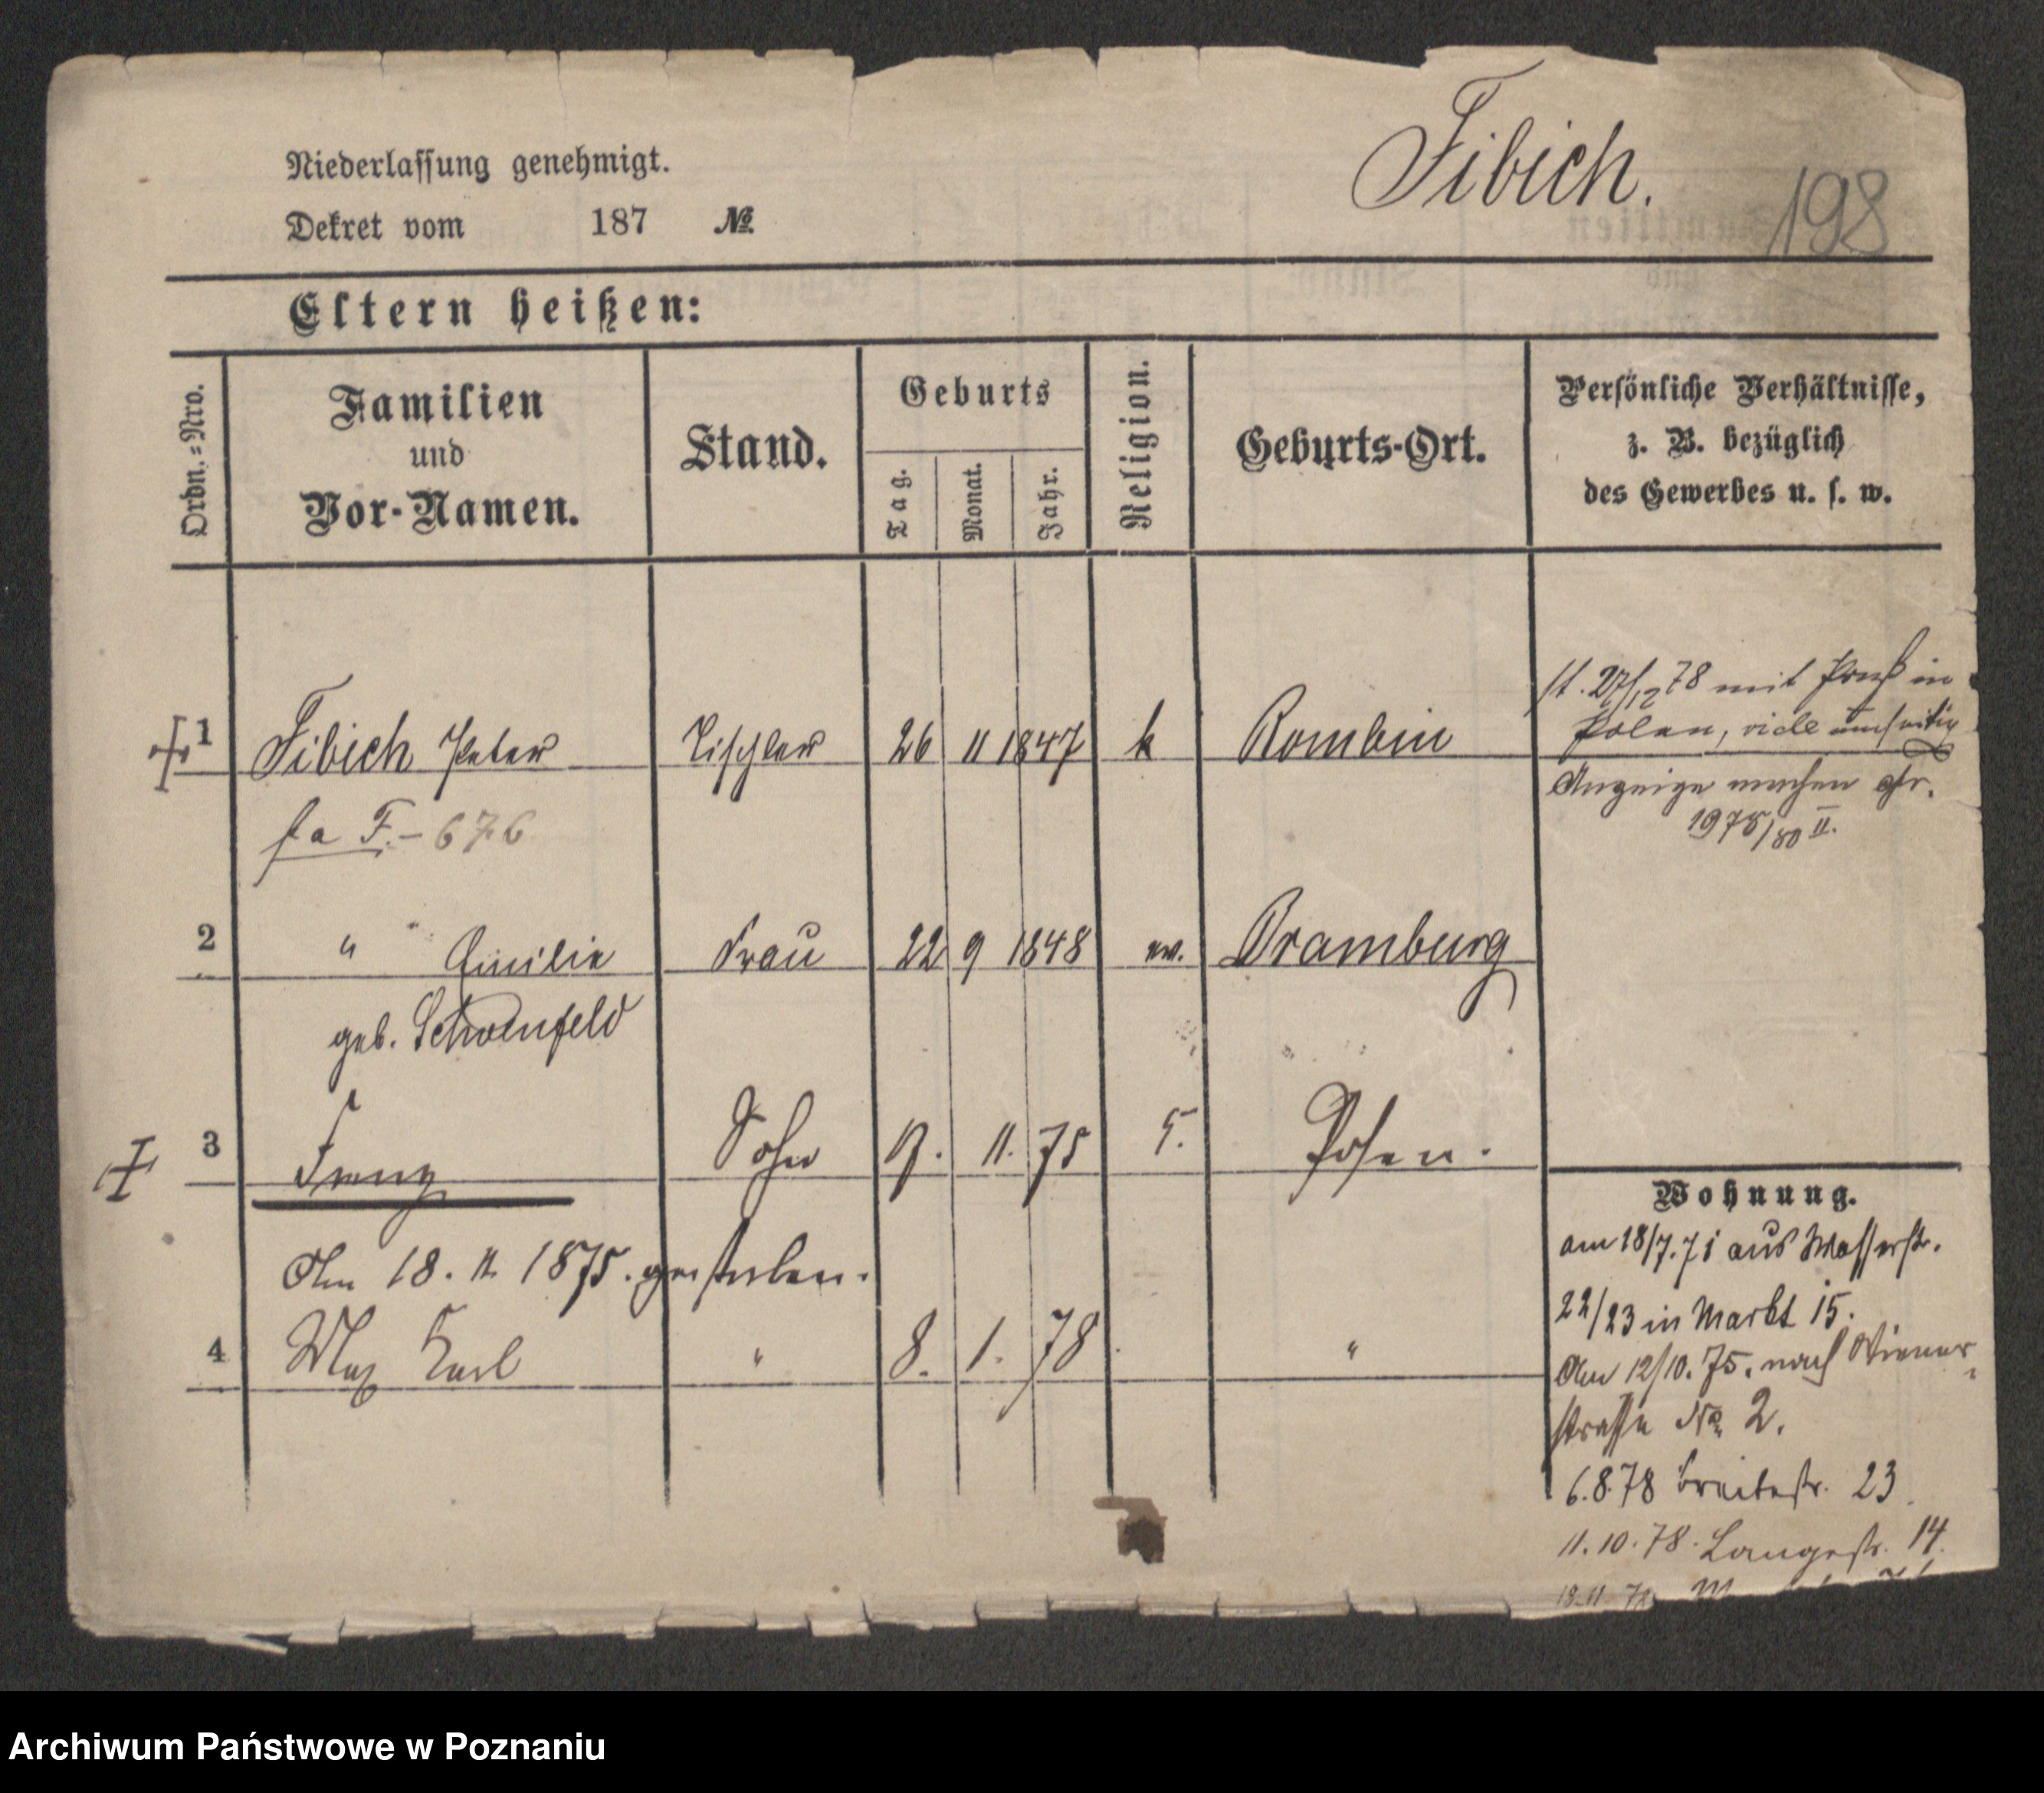 Fibich.
198
Niederlassung genehmigt.
Dekret vom 187 №
Eltern heißen:
Ordn.=Nro.
Familien
und
Vor-Namen.
Stand.
Geburts
Tag.
Monat.
Jahr.
Religion.
Geburts-Ort.
Persönliche Verhältnisse,
z. B. bezüglich
des Gewerbes u. s. w.
1 Fibich Peter Tischler 26 11 1847 k Rombin
27/12 78 mit in
Polen, vide umseitig
Anzeige machen cfr.
1975/80 II.
fa F. – 676
2 " " Emilie Frau 22 9 1848 ev. Dramburg
geb. Schoenfeld
3 Franz Sohn 9. 11. 75 Posen.
Am 18. 11. 1875. gestorben.
4 Max Karl " 8. 1. 78 "
Wohnung.
am 18/7. 71 aus Wasserstr.
22/23 in Markt 15.
Am 12/10. 75. nach Wiener
strasse No 2.
6.8.78 Breitestr. 23
11.10.78. Langestr. 14.
18.11 78
Archiwum Państwowe w Poznaniu